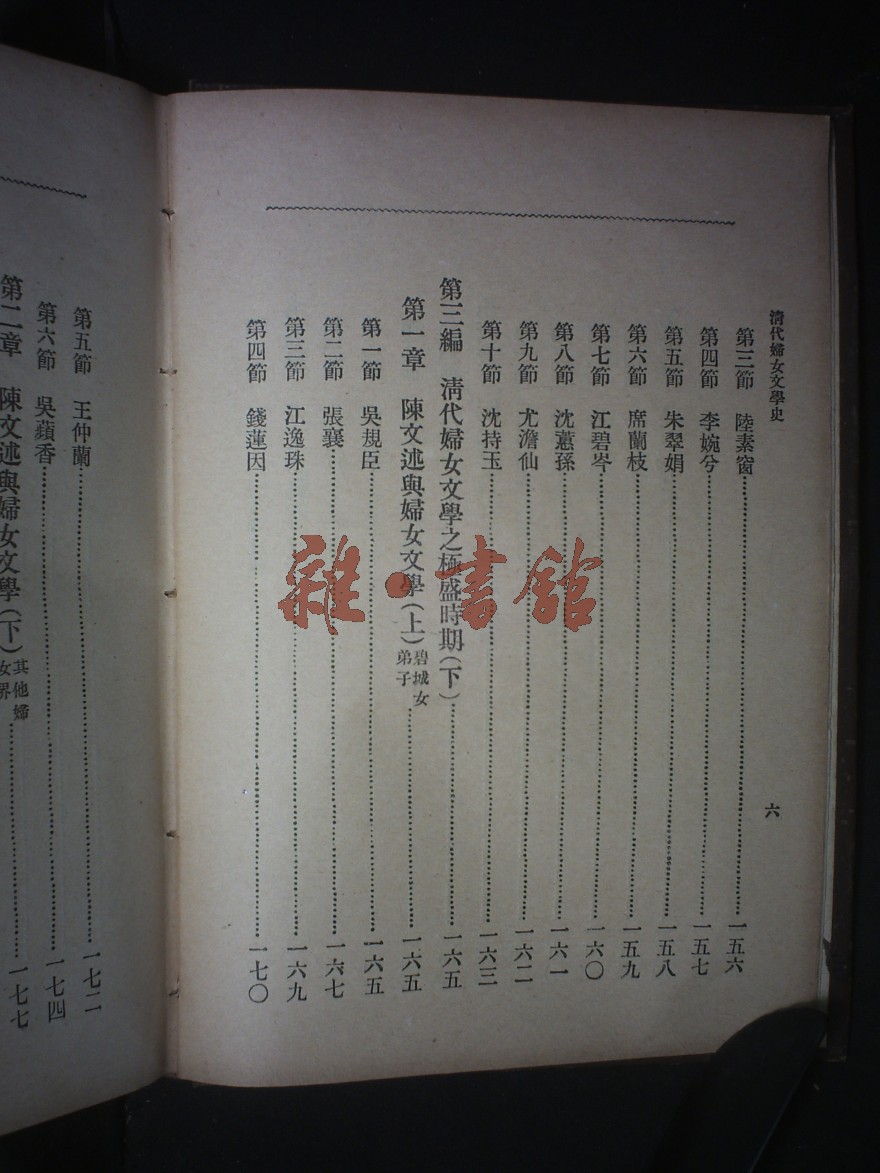 清代婦女文學史
六
第三節　陸素窗……一五六
第四節　李婉兮……一五七
第五節　朱翠娟……一五八
第六節　席蘭枝……一五九
第七節　江碧岑……一六〇
第八節　沈蕙孫……一六一
第九節　尤澹仙……一六二
第十節　沈持玉……一六三
第三編　清代婦女文學之極盛時期（下）……一六五
第一章　陳文述與婦女文學（上）碧城女弟子……一六五
第一節　吳規臣……一六五
第二節　張襄……一六七
第三節　江逸珠……一六九
第四節　錢蓮因……一七〇
第五節　王仲蘭……一七二
第六節　吳蘋香……一七四
第二章　陳文述與婦女文學（下）其他婦女界……一七七
雜·書館